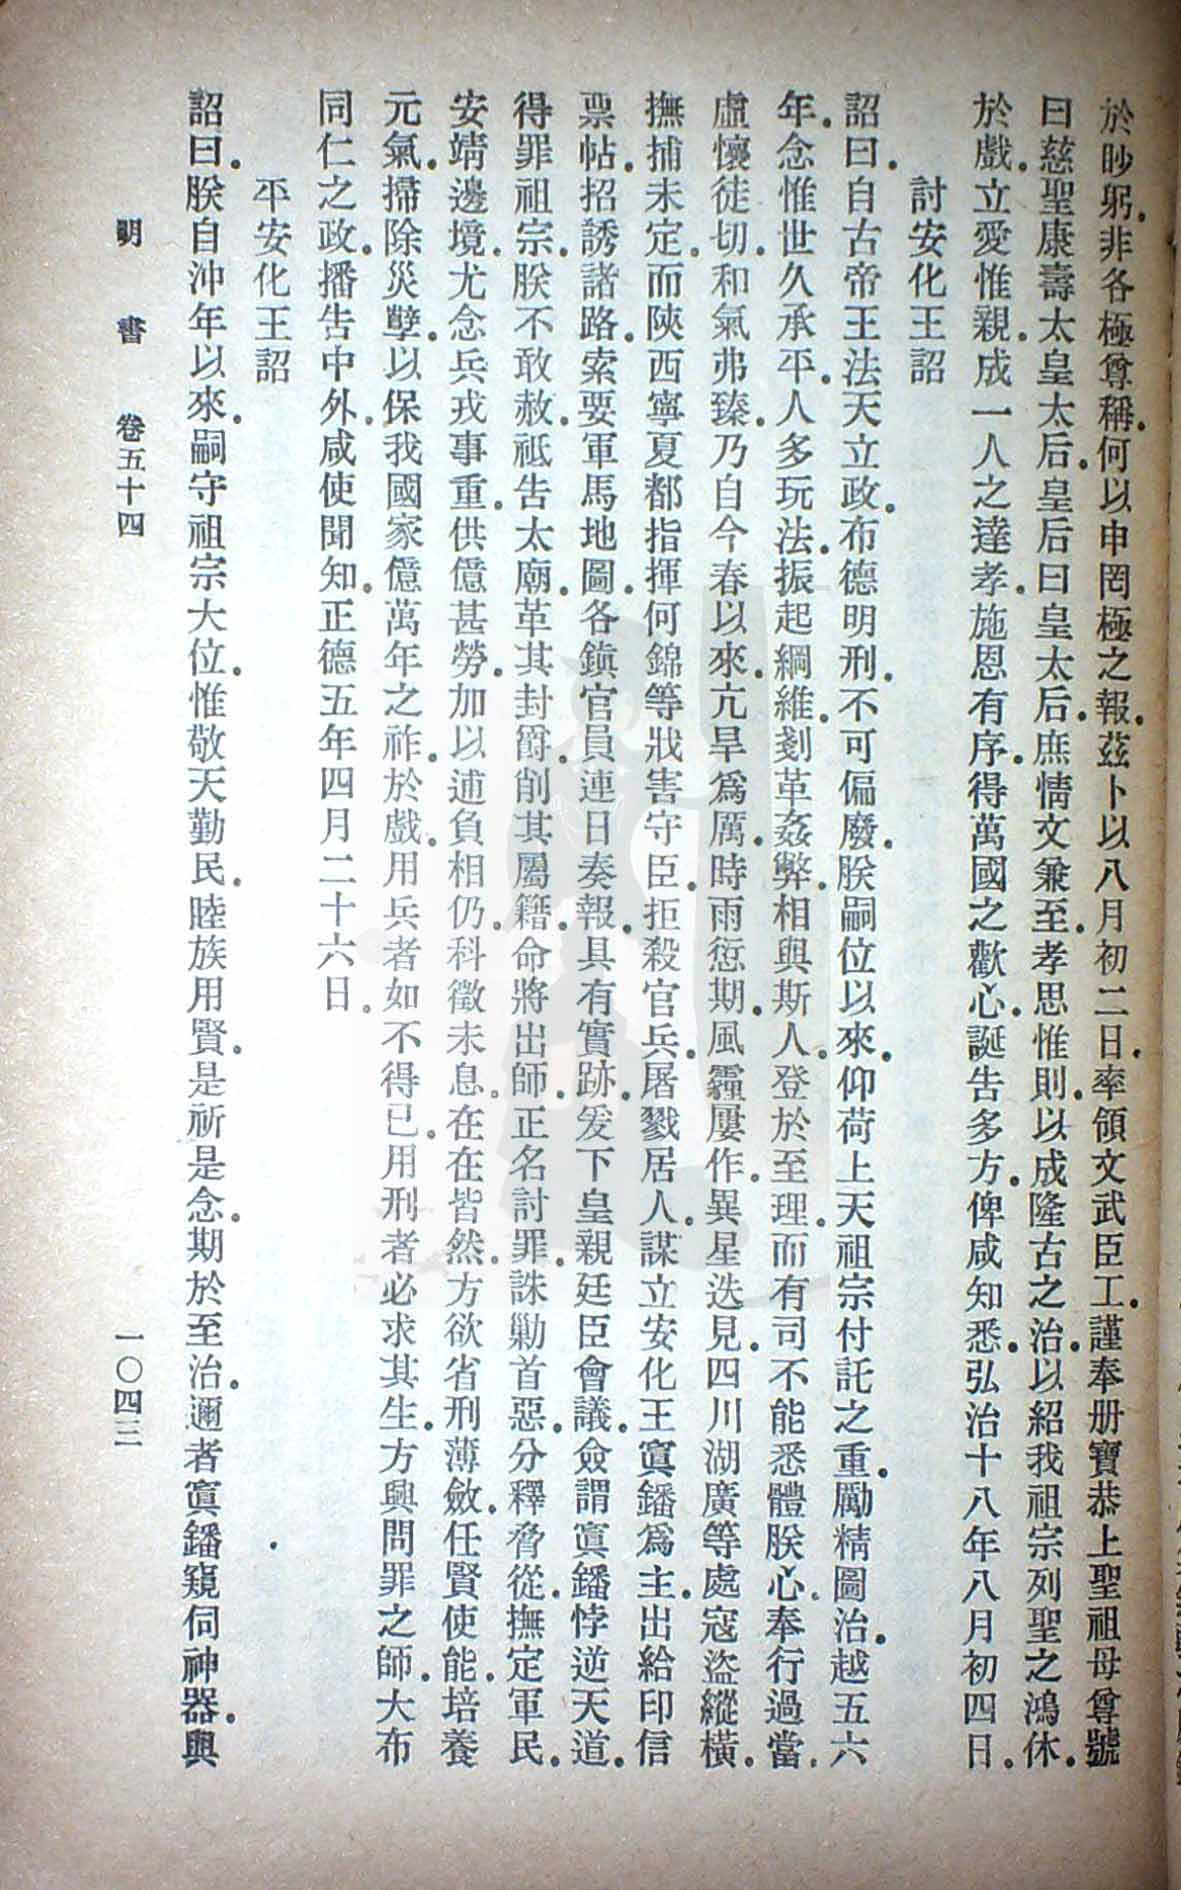 於眇躬。非各極尊稱。何以申罔極之報。茲卜以八月初二日。率領文武臣工。謹奉册寶恭上聖祖母尊號
曰慈聖康壽太皇太后。皇后曰皇太后。庶情文兼至。孝思惟則。以成隆古之治。以紹我祖宗列聖之鴻休。
於戲。立愛惟親。成一人之達孝。施恩有序。得萬國之歡心。誕告多方。俾咸知悉。弘治十八年八月初四日。
討安化王詔
詔曰。自古帝王法天立政。布德明刑。不可偏廢。朕嗣位以來。仰荷上天祖宗付託之重。勵精圖治。越五六
年。念惟世久承平。人多玩法。振起綱維。剗革姦弊。相與斯人。登於至理。而有司不能悉體朕心。奉行過當。
虛懷徒切。和氣弗臻。乃自今春以來。亢旱爲厲。時雨愆期。風霾屢作。異星迭見。四川湖廣等處寇盜縱橫。
撫捕未定。而陝西寧夏都指揮何錦等。戕害守臣。拒殺官兵。屠戮居人。謀立安化王寘鐇爲主。出給印信
票帖。招誘諸路。索要軍馬地圖。各鎮官員連日奏報。具有實跡。爰下皇親廷臣會議。僉謂寘鐇悖逆天道。
得罪祖宗。朕不敢赦。祗告太廟。革其封爵。削其屬籍。命將出師。正名討罪。誅勦首惡。分釋脅從。撫定軍民。
安靖邊境。尤念兵戎事重。供億甚勞。加以逋負相仍。科徵未息。在在皆然。方欲省刑薄斂。任賢使能。培養
元氣。掃除災孽。以保我國家億萬年之祚。於戲。用兵者如不得已。用刑者必求其生。方興問罪之師。大布
同仁之政。播告中外。咸使聞知。正德五年四月二十六日。
平安化王詔
詔曰。朕自沖年以來。嗣守祖宗大位。惟敬天勤民。睦族用賢。是祈是念。期於至治。邇者寘鐇窺伺神器。與
明 書 卷五十四 一〇四三